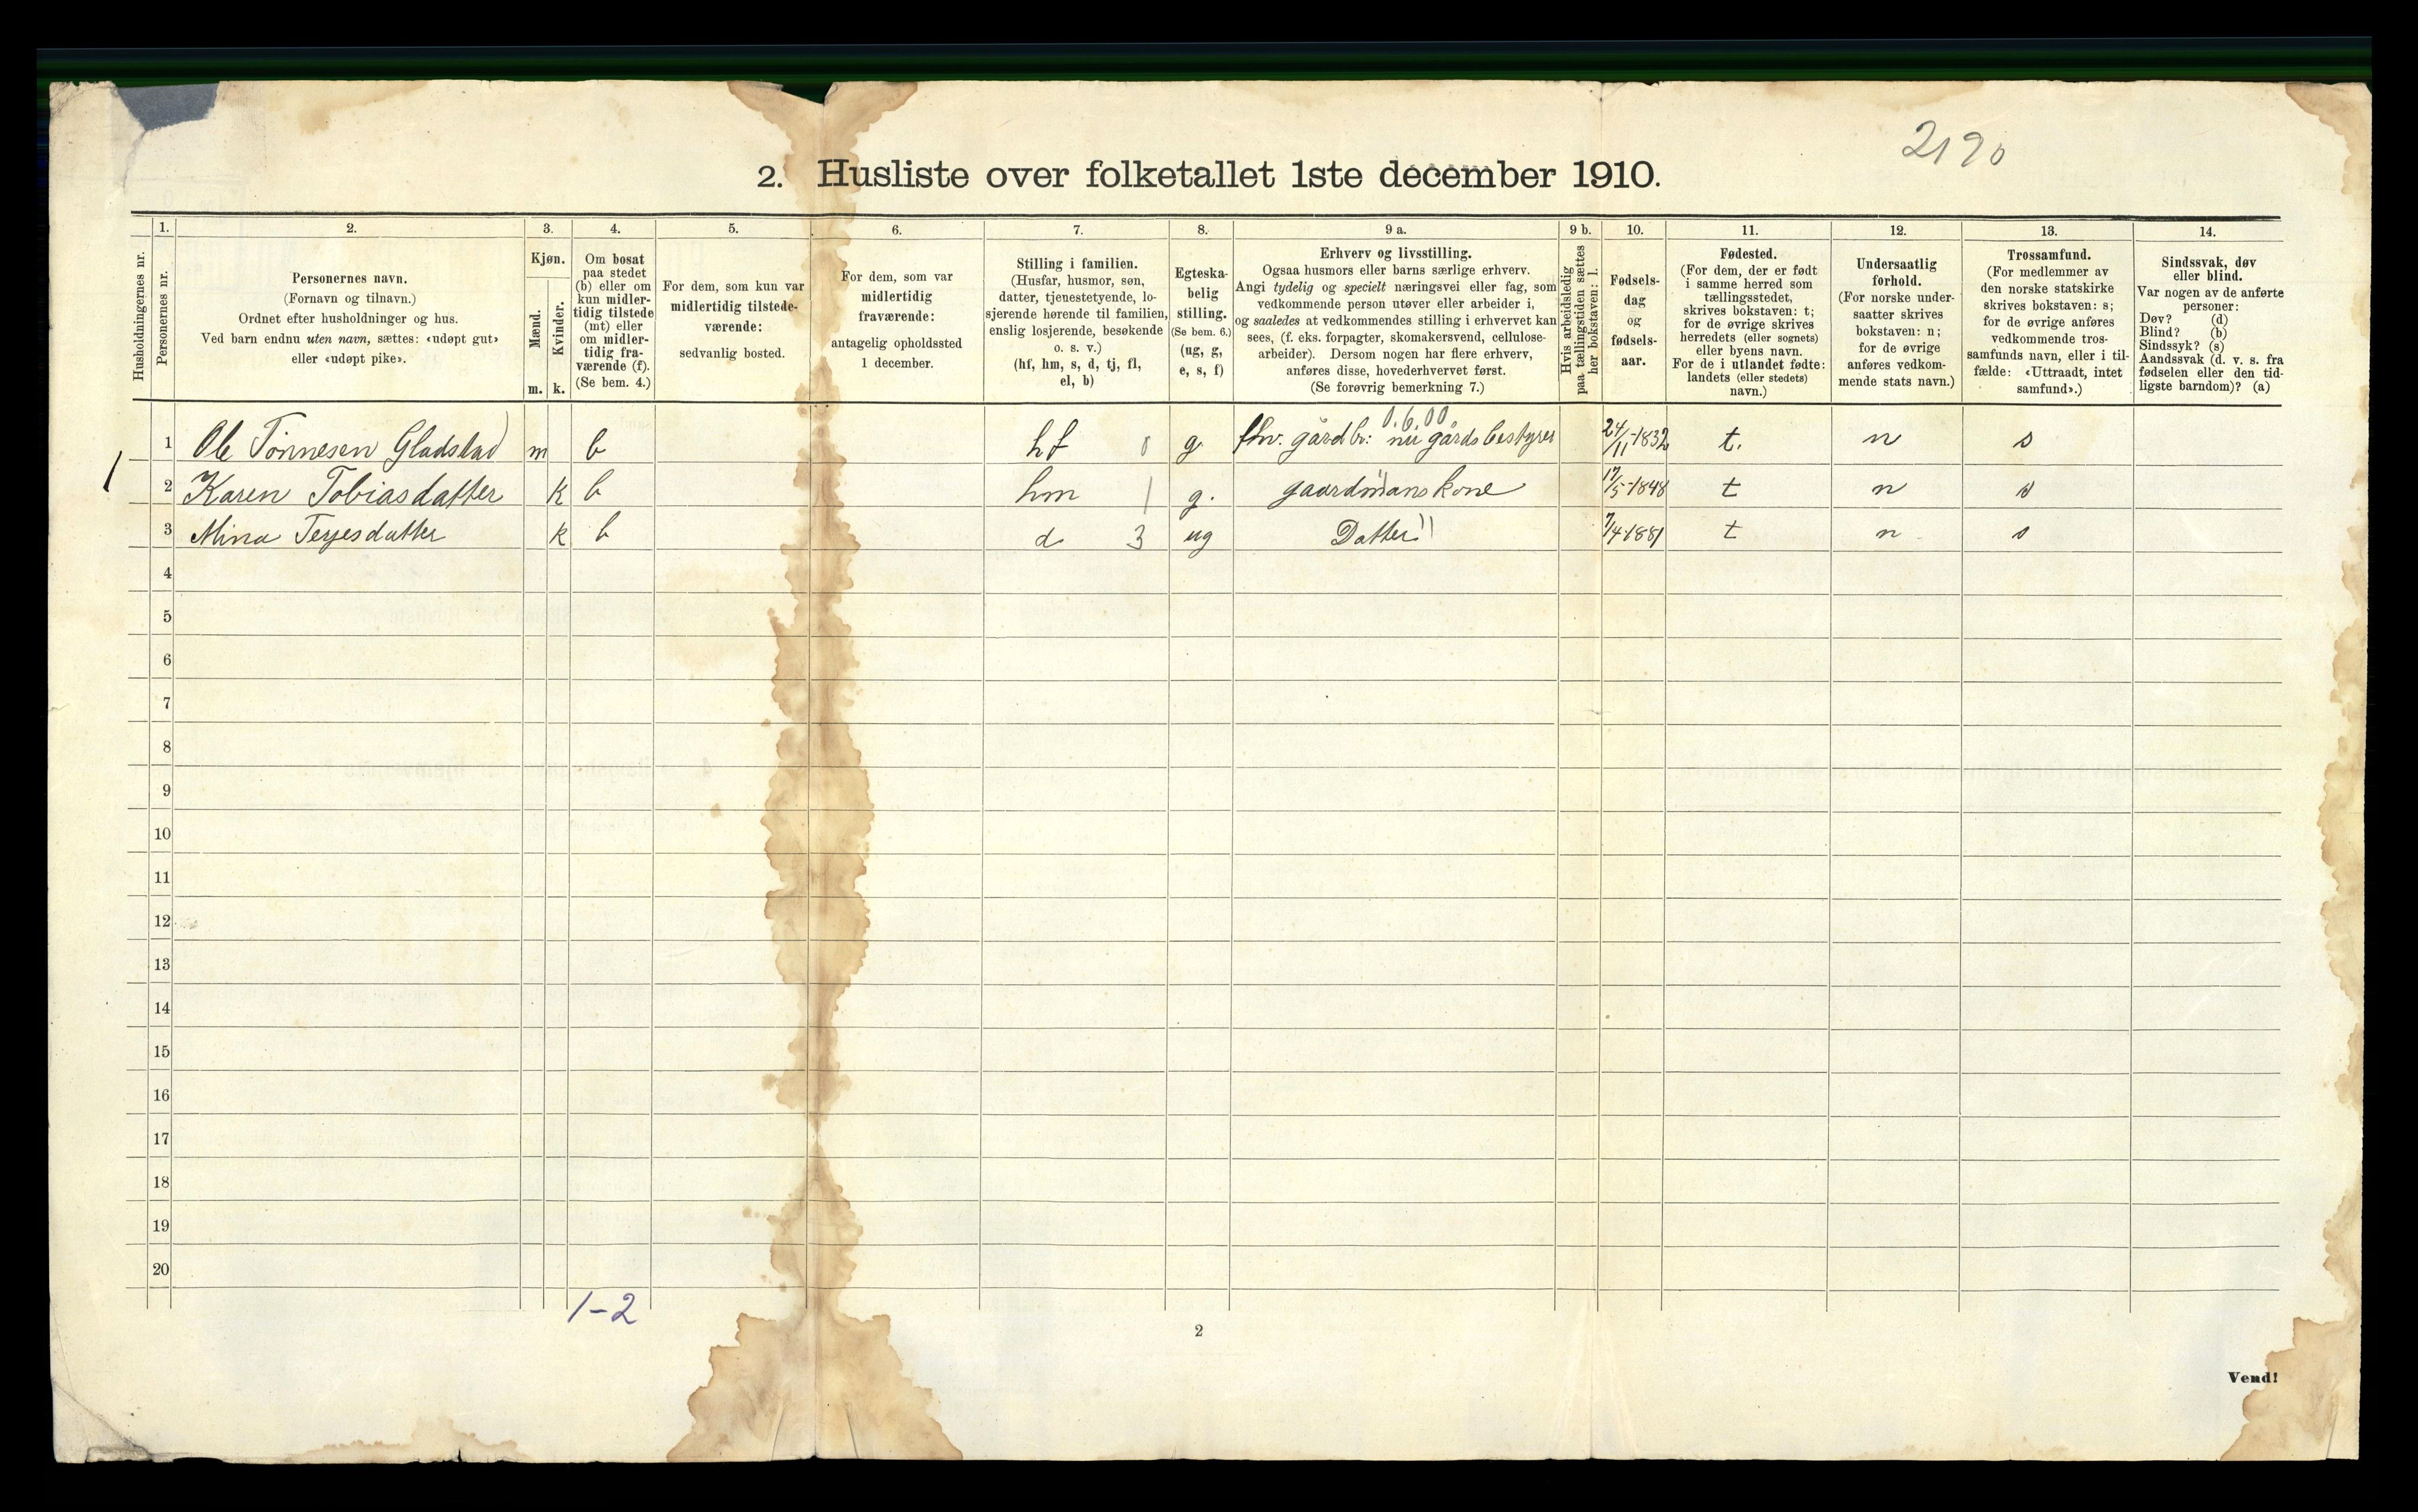 2190
2. Husliste over folketallet 1ste december 1910.
Husholdningernes nr.
1.
Personernes nr.
2.
Personernes navn.
(Fornavn og tilnavn.)
Ordnet efter husholdninger og hus.
Ved barn endnu uten navn, sættes: «udøpt gut»
eller «udøpt pike».
3.
Kjøn.
Mænd.
Kvinder.
m. k.
4.
Om bosat
paa stedet
(b) eller om
kun midler-
tidig tilstede
(mt) eller
om midler-
tidig fra-
værende (f).
(Se bem. 4.)
5.
For dem, som kun var
midlertidig tilstede-
værende:
sedvanlig bosted.
6.
For dem, som var
midlertidig
fraværende:
antagelig opholdssted
1 december.
7.
Stilling i familien.
(Husfar, husmor, søn,
datter, tjenestetyende, lo-
sjerende hørende til familien,
enslig losjerende, besøkende
o. s. v.)
(hf, hm, s, d, tj, fl,
el, b)
8.
Egteska-
belig
stilling.
(Se bem. 6.)
(ug, g,
e, s, f)
9 a.
Erhverv og livsstilling.
Ogsaa husmors eller barns særlige erhverv.
Angi tydelig og specielt næringsvei eller fag, som
vedkommende person utøver eller arbeider i,
og saaledes at vedkommendes stilling i erhvervet kan
sees, (f. eks. forpagter, skomakersvend, cellulose-
arbeider). Dersom nogen har flere erhverv,
anføres disse, hovederhvervet først.
(Se forøvrig bemerkning 7.)
9 b.
Hvis arbeidsledig
paa tællingstiden sættes
her bokstaven: l.
10.
Fødsels-
dag
og
fødsels-
aar.
11.
Fødested.
(For dem, der er født
i samme herred som
tællingsstedet,
skrives bokstaven: t;
for de øvrige skrives
herredets (eller sognets)
eller byens navn.
For de i utlandet fødte:
landets (eller stedets)
navn.)
12.
Undersaatlig
forhold.
(For norske under-
saatter skrives
bokstaven: n;
for de øvrige
anføres vedkom-
mende stats navn.)
13.
Trossamfund.
(For medlemmer av
den norske statskirke
skrives bokstaven: s;
for de øvrige anføres
vedkommende tros-
samfunds navn, eller i til-
fælde: «Uttraadt, intet
samfund».)
14.
Sindssvak, døv
eller blind.
Var nogen av de anførte
personer:
Døv? (d)
Blind? (b)
Sindssyk? (s)
Aandssvak (d. v. s. fra
fødselen eller den tid-
ligste barndom)? (a)
0.6.00
1 Ole Tönnesen Gladstad m b hf 0 g fhv. gårdbr: nu gårdsbestyrer 24/11-1832 t. n s
1
2 Karen Tobiasdatter k b hm 1 g. gaardmans kone 17/5-1848 t n s
3 Mina Terjesdatter k b d 3 ug Datter 7/4-1881 t n s
4
5
6
7
8
9
10
11
12
13
14
15
16
17
18
19
20
1-2
2
Vend!